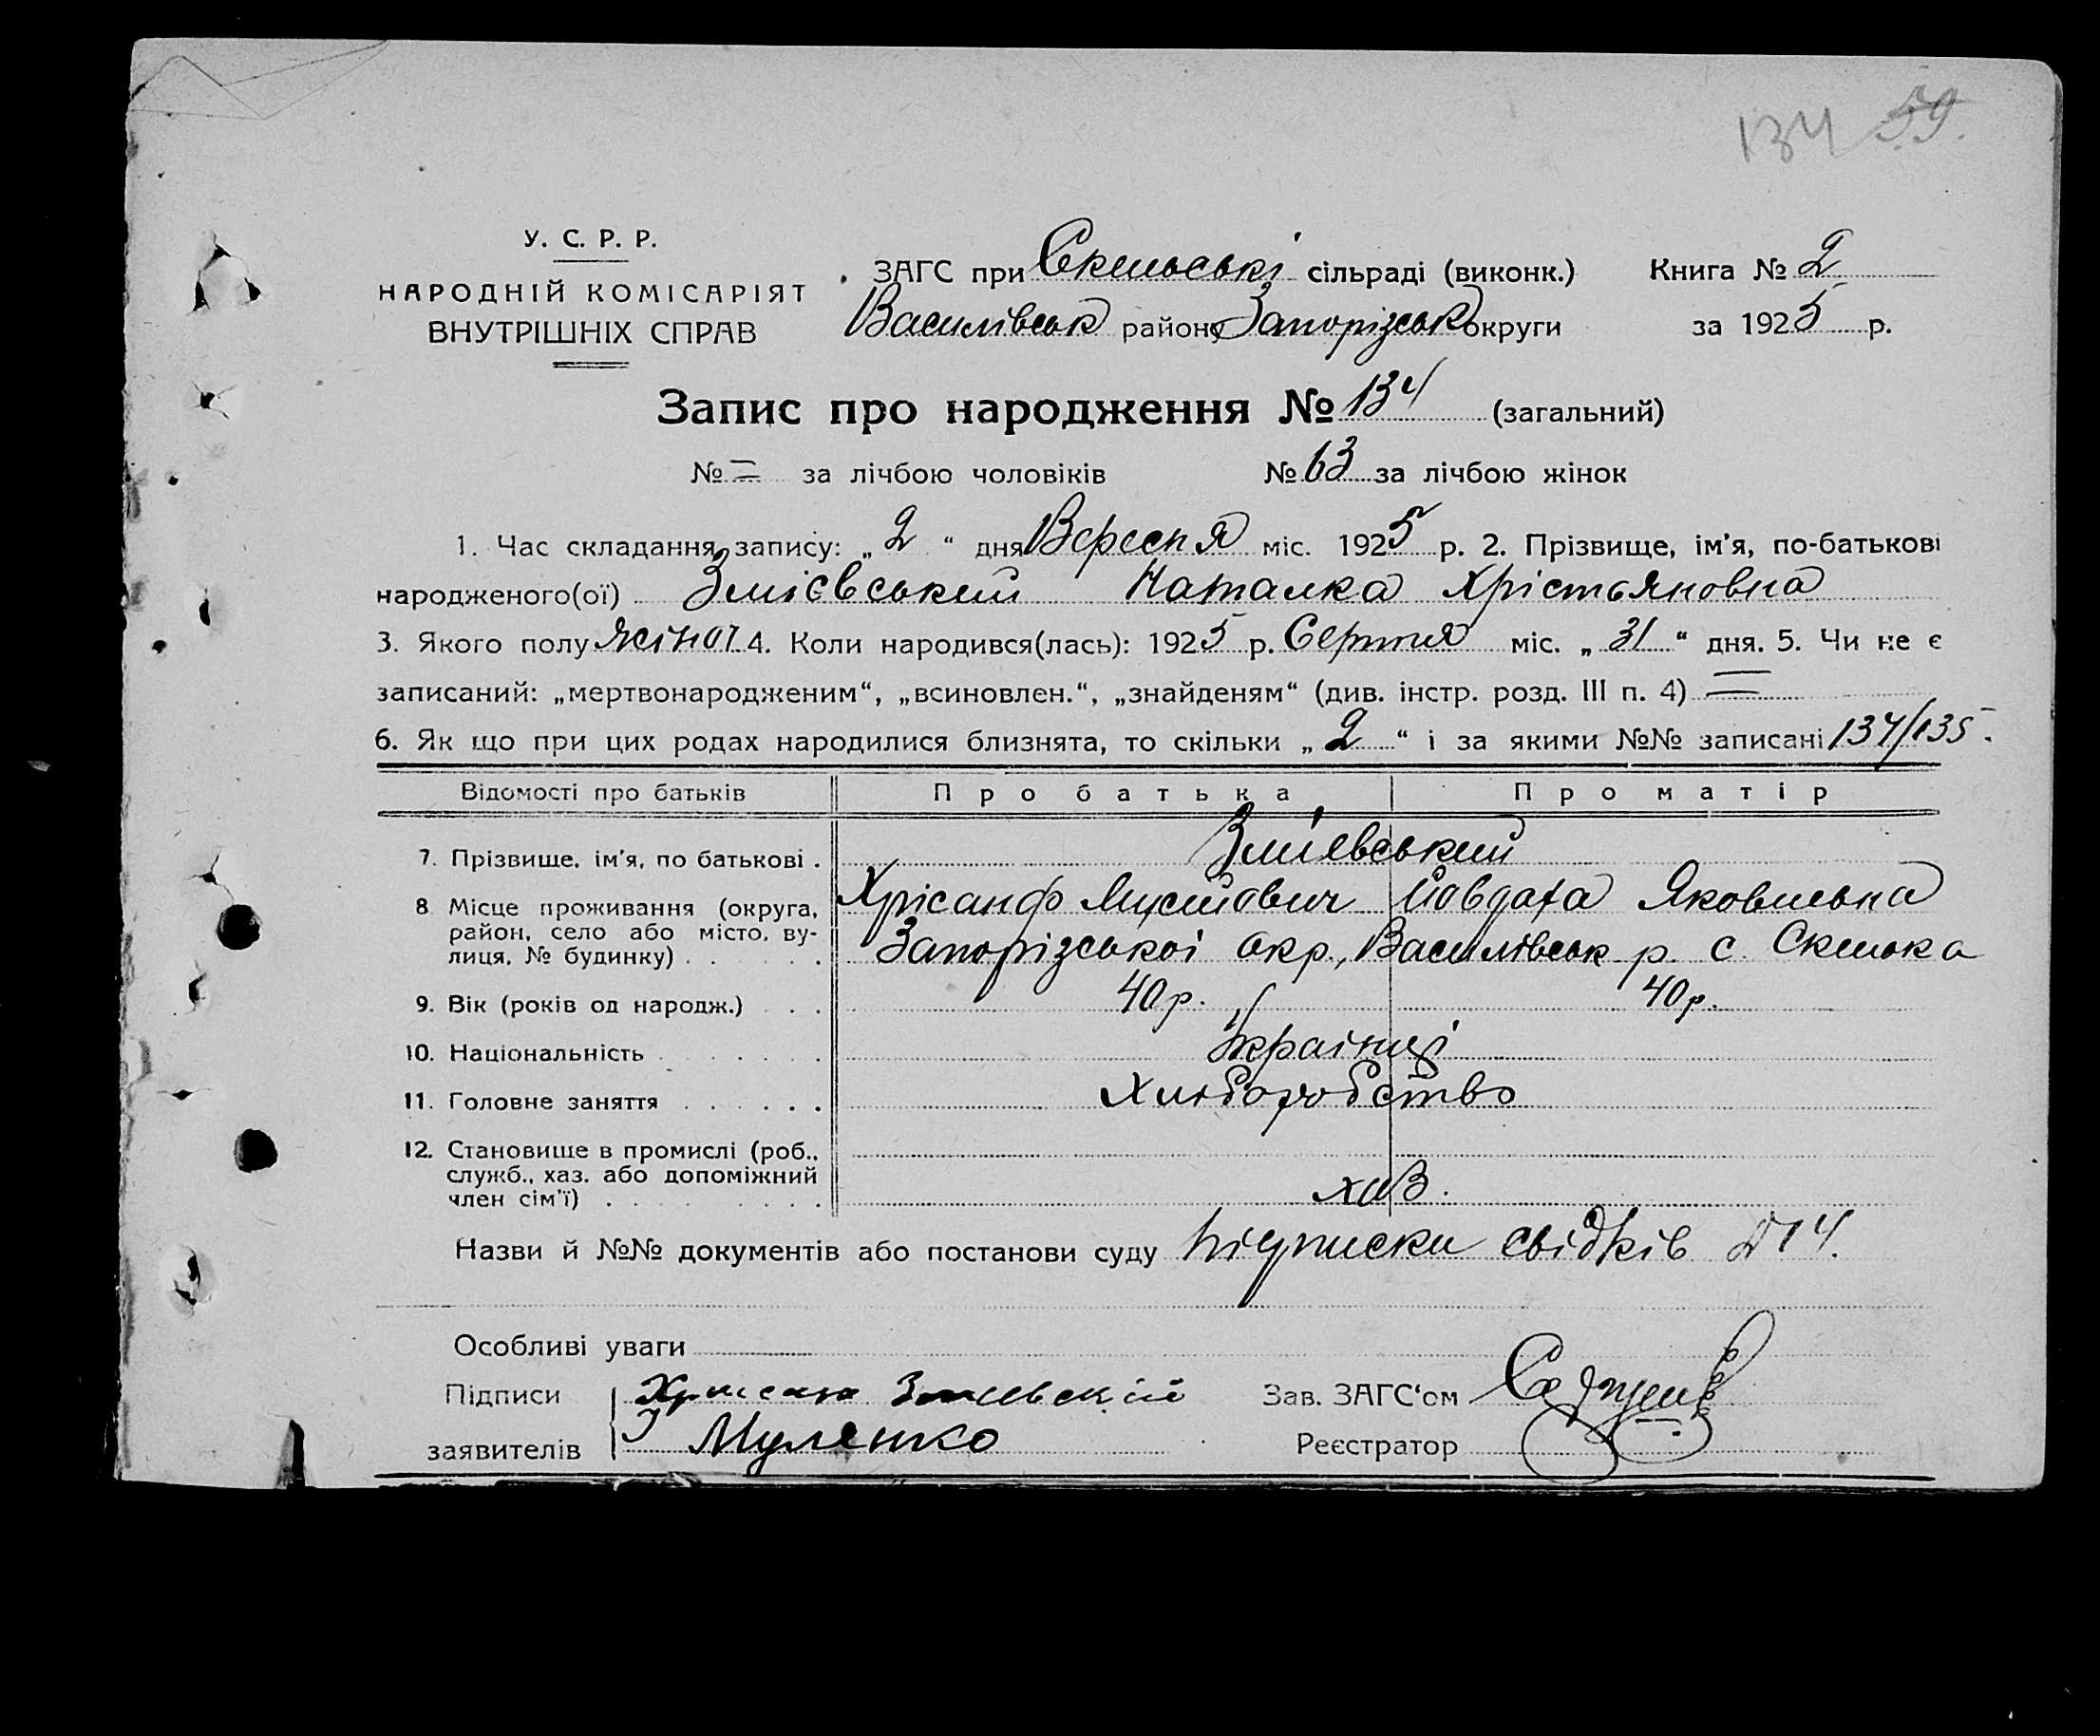 134 59.
У. С. Р. Р.
НАРОДНІЙ КОМІСАРІЯТ
ВНУТРІШНІХ СПРАВ
ЗАГС при Скельські сільраді (виконк.) Книга № 2
Василівськ району Запорізськ округи за 1925 р.
Запис про народження № 134 (загальний)
№ = за лічбою чоловіків № 63 за лічбою жінок
1. Час складання запису: „ 2 “ дня Вересня міс. 1925 р. 2. Прізвище, ім'я, по-батькові
народженого(ої) Змієвський Наталка Хрістьяновна
3. Якого полу жіноі 4. Коли народився(лась): 1925 р. Серпня міс. „ 31 “ дня. 5. Чи не є
записаний: „мертвонародженим“, „всиновлен.“, „знайденям“ (див. інстр. розд. III п. 4) =
6. Як що при цих родах народилися близнята, то скільки „ 2 “ і за якими №№ записані 134/135.
Відомості про батьків Про батька Про матір
7. Прізвище, ім'я, по батькові . Змієвський
8 Місце проживання (округа, Хрісанф Яковлевна
район, село або місто, ву-
лиця, № будинку) . . . . Запорізськоі окр., Василівськ р. с. Скелька
9. Вік (років од народж.) . . . 40 р. 40 р.
10. Національність . . . . . . Украінці
11. Головне заняття . . . . . . Хліборобство
12. Становище в промислі (роб.,
служб., хаз. або допоміжний
член сім'ї) . . . . . . хаз.
Назви й №№ документів або постанови суду Підписки свідків 214.
Особливі уваги
Підписи Змиевскій Зав. ЗАГС‘ом
заявителів Муленко Реєстратор